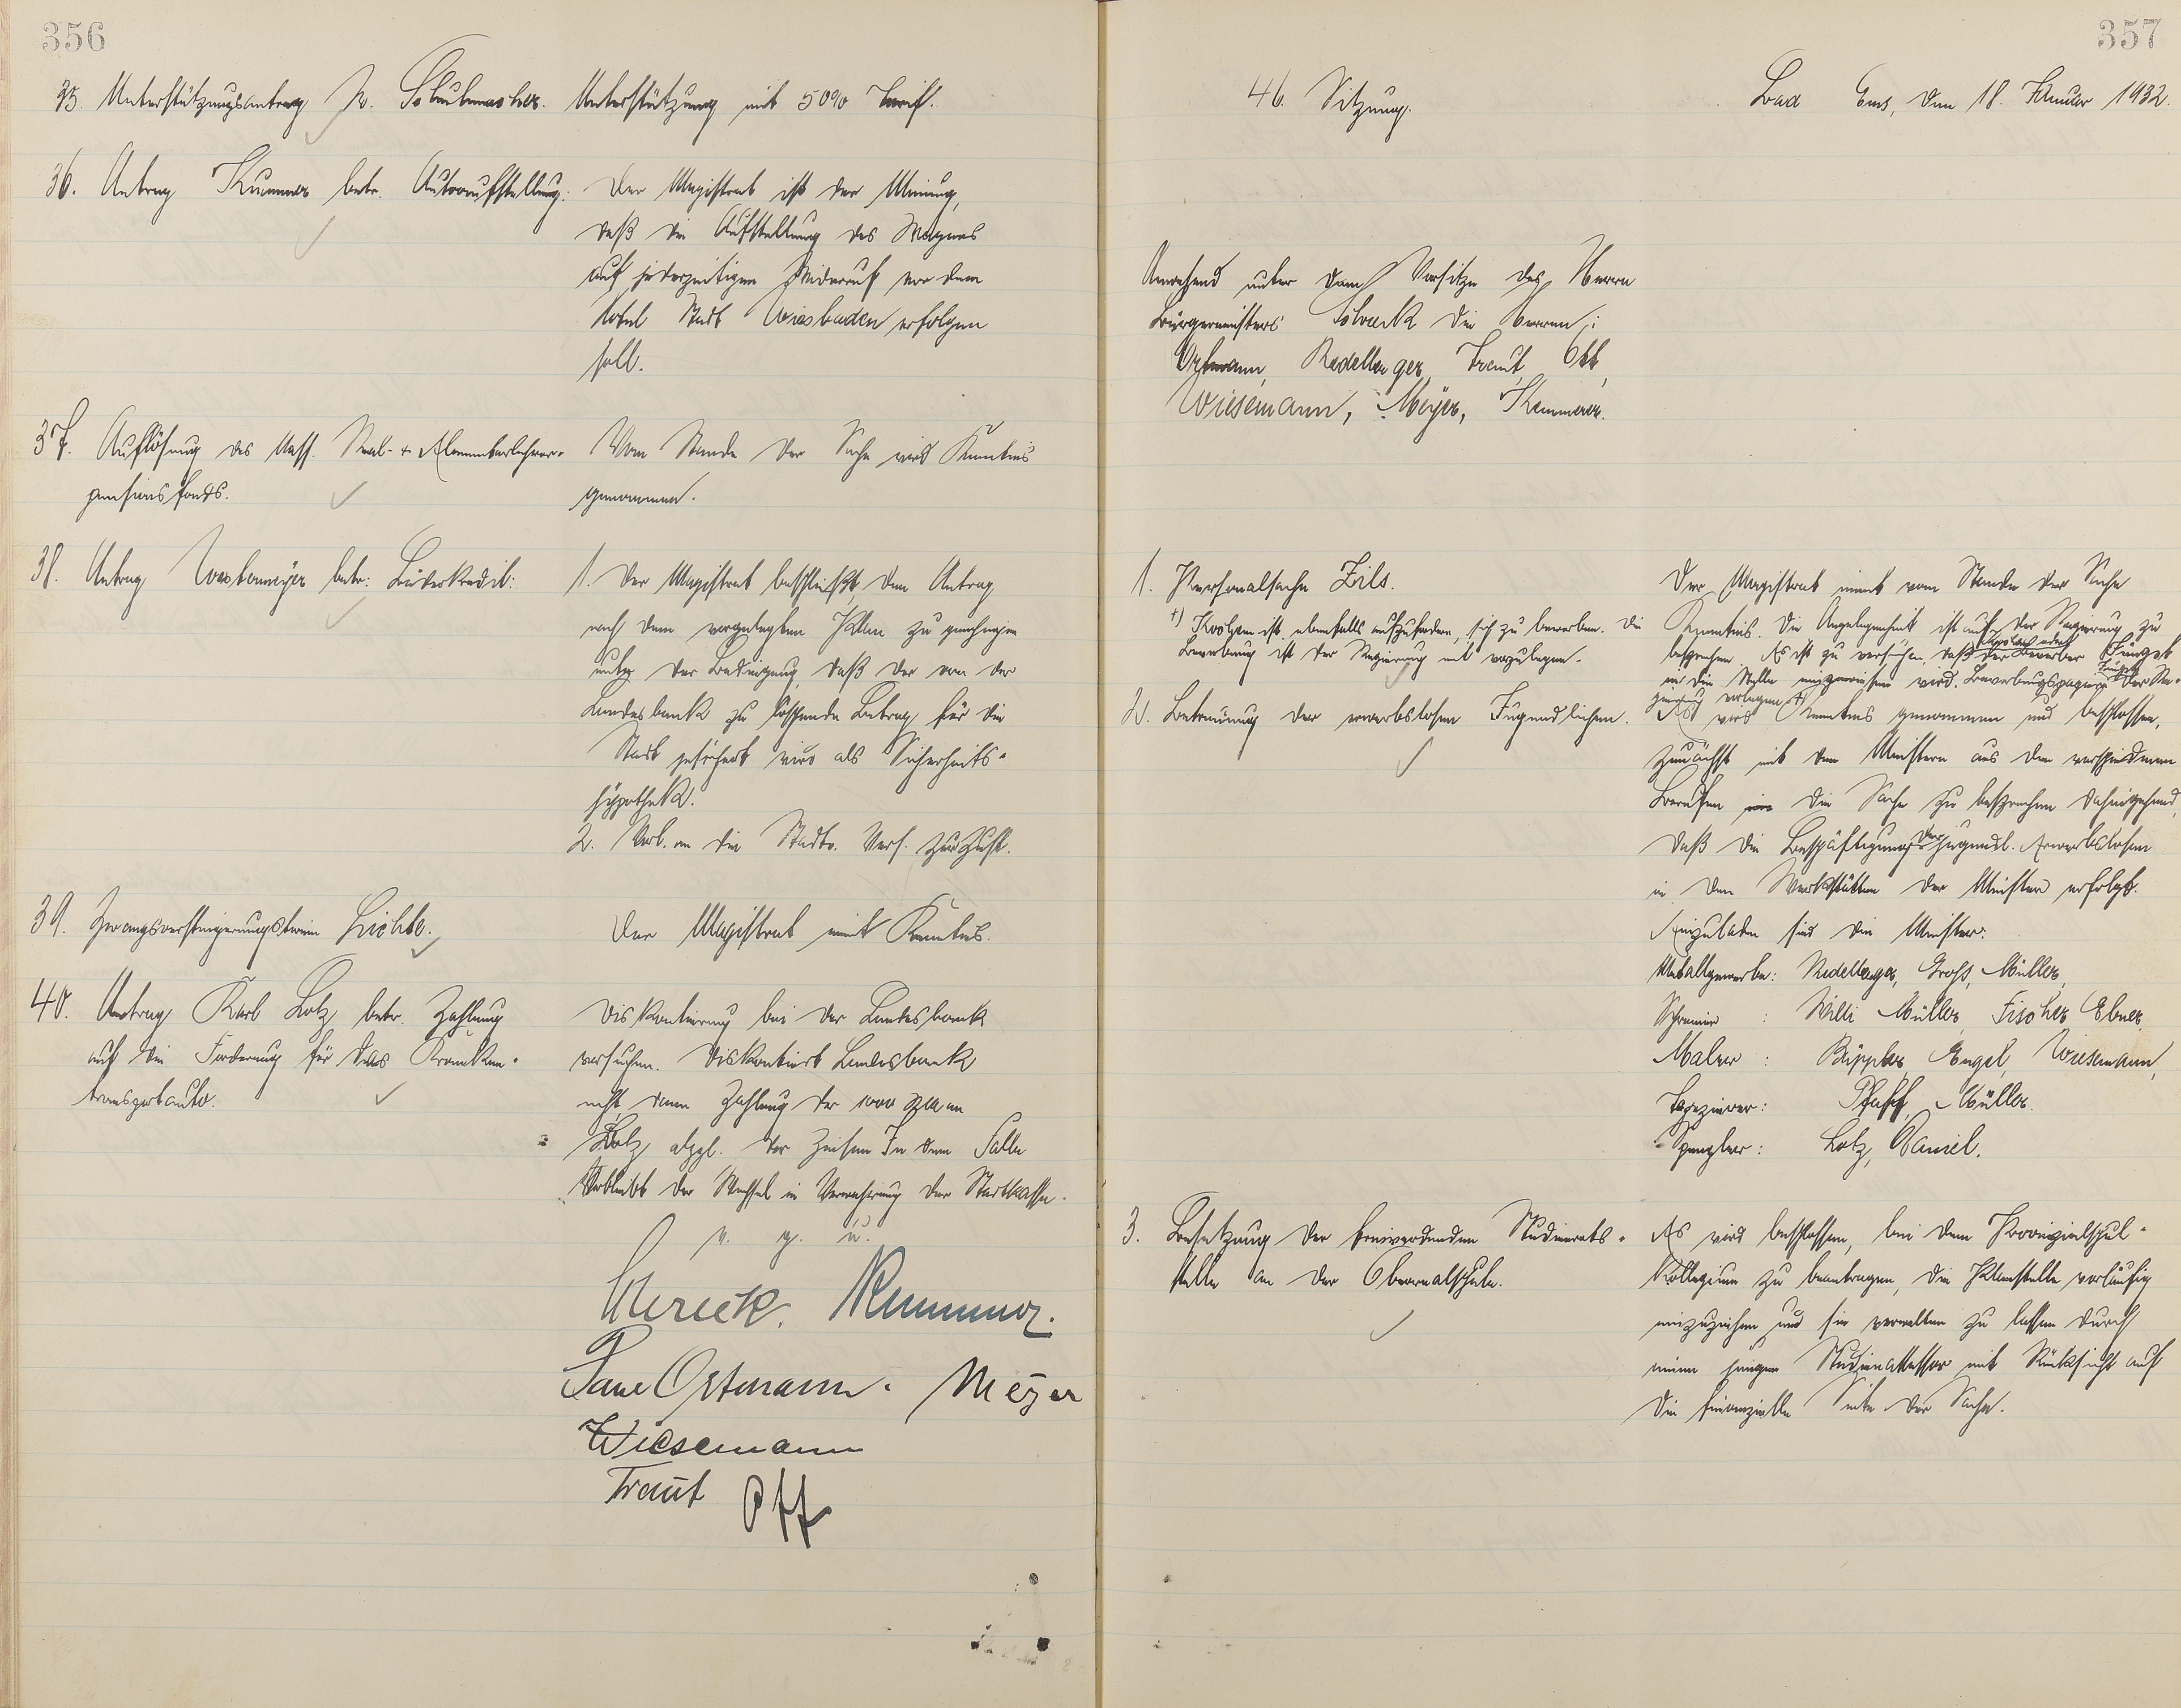 356
35. Unterstützungsantrag W. Schuhmacher.
Unterstützung mit 50% Tarif.
36. Antrag Kummer betr. Autoaufstellung:
Der Magistrat ist der Meinung,
daß die Aufstellung des Wagens
auf jederzeitigen Widerruf vor dem
Hotel Stadt Wiesbaden erfolgen
soll.
37. Auflösung des Nass. Real- + Elementarlehrer-
pensionsfonds.
Vom Stande der Sache wird Kenntnis
genommen.
38. Antrag Westermeyer betr:
1. Der Magistrat beschließt dem Antrag
nach dem vorgelegten Plan zu genehmigen
unter der Bedingung, daß der von der
Landesbank zu löschende Betrag für die
Stadt gesichert wird als Sicherheits-
hypothek.
2. Vorl. an die Stadtv. Vers. zur Zust.
39. Zwangsversteigerungstermin Lichte.
Der Magistrat nimmt Kenntnis.
40. Antrag Karl Lotz betr. Zahlung
auf die Forderung für das Kranken-
transportauto.
Diskontierung bei der Landesbank
versuchen. Diskontiert Landesbank
nicht, dann Zahlung der 1000 RM an
Lotz abzgl. der Zinsen In dem Falle
verbleibt der Wechsel in Verwahrung der Stadtkasse.
v. g. u.
Kummer.
Ortmann. Meyer
Wiesemann
Traut Ott
357
46. Sitzung.
Bad Ems, den 18. Januar 1932.
Anwesend unter dem Vorsitze des Herrn
Bürgermeisters die Herren:
Ortmann, Redelberger, Traut, Ott,
Wiesemann, Meyer, Kummer.
1. Personalsache Zils.
+) ist ebenfalls aufzufordern, sich zu bewerben. Die
Bewerbung ist der Regierung mit vorzulegen.
Der Magistrat nimmt vom Stande der Sache
Kenntnis. Die Angelegenheit ist auf der Regierung zu
besprechen. Es ist zu versuchen, daß der Bewerber
in die Stelle eingewiesen wird. Bewerbungspapiere der Re-
gierung vorlegen +)
2. Betreuung der erwerbslosen Jugendlichen.
Es wird Kenntnis genommen und beschlossen,
zunächst mit den Meistern aus den verschiedenen
Berufen die Sache zu besprechen dahingehend,
daß die Beschäftigung der jugendl. Erwerbslosen
in den Werkstätten der Meister erfolgt.
Einzuladen sind die Meister:
Metallgewerbe: Redelberger, Groß, Müller,
Schreiner : Willi Müller, Fischer Ebner,
Maler : Engel, Wiesemann,
Tapezierer: Pfaff, Müller.
Spengler: Lotz,
3. Besetzung der freiwerdenden Studienrats-
stelle an der Oberrealschule.
Es wird beschlossen, bei dem Provinzialschul-
Kollegium zu beantragen, die Planstelle vorläufig
einzuziehen und sie verwalten zu lassen durch
einen jungen Studienassessor mit Rücksicht auf
die finanzielle Seite der Sache.